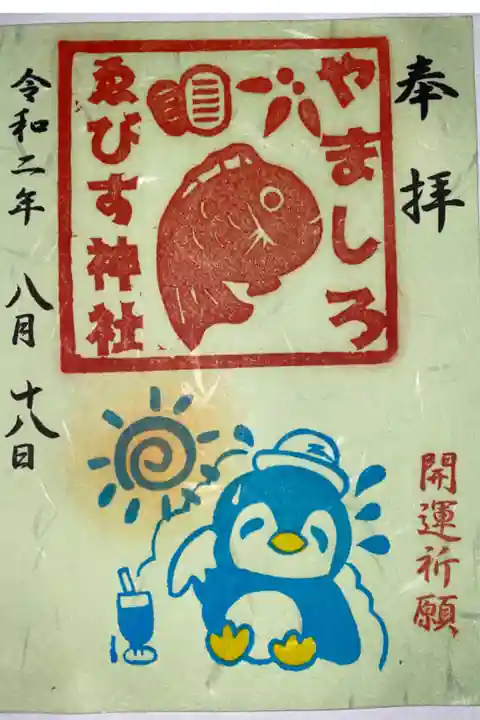 奉拝
やましろ
ゑびす神社
令和二年 八月 十八日
開運祈願